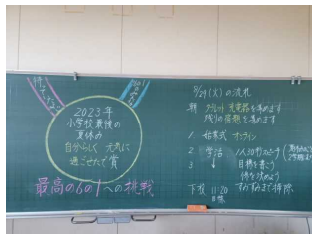 2023年
小学校最後の
夏休み
自分らしく 元気に
過ごせたで賞
最高の6の1への挑戦
8/29(火)の流れ
朝 タブレット充電器を集めます
残りの宿題を集めます
1 始業式 オンライン
2 学活 1人30秒スピーチ
3 目標を書こう
係を決めよう
下校 11:20
すみずみまで掃除